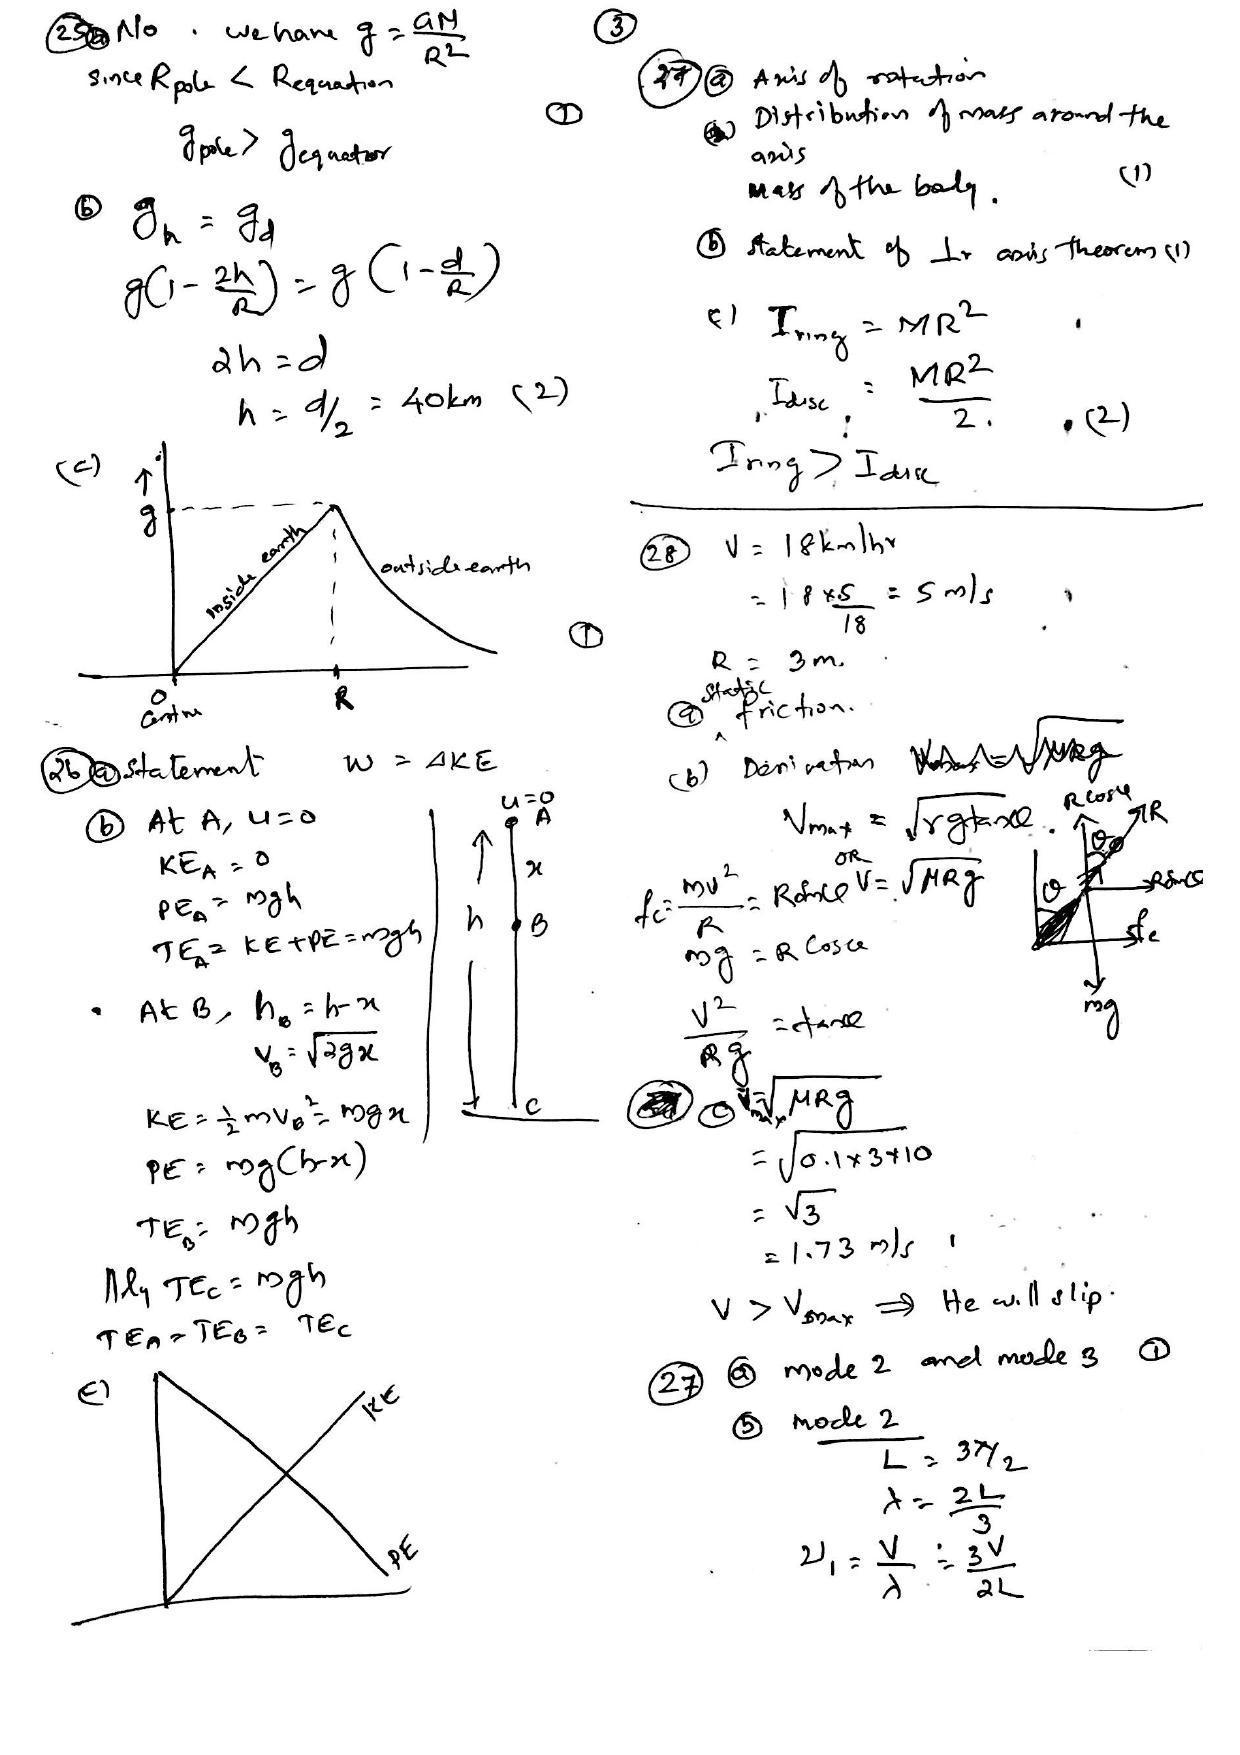 ③
25 ⓐ No . we have g = GM/R²
since Rpole < Requation
gpole > gequator
①
ⓑ gh = gd
g(1 - 2h/R) = g(1 - d/R)
2h = d
h = d/2 = 40km (2)
(c)
↑
g
inside earth
outside earth
①
O
Centre
R
26 ⓐ Statement W = ΔKE
ⓑ At A, u=0
KEA = 0
PEA = mgh
TEA = KE+PE = mgh
At B, hB = h-x
VB = √2gx
KE = ½ mVB² = mgx
PE = mg(h-x)
TEB = mgh
lllly TEC = mgh
TEA = TEB = TEC
u=0
A
x
h
B
C
c)
KE
PE
27 ⓐ Axis of rotation
Distribution of mass around the
axis
Mass of the body. (1)
ⓑ statement of ⊥r axis theorem (1)
c) Iring = MR²
Idisc = MR²/2. (2)
Iring > Idisc
28 V = 18km/hr
= 18 × 5/18 = 5 m/s
R = 3m.
ⓐ static friction.
(b) Derivation
Vmax = √rgtanθ.
OR
fc = mv²/R = Rsinθ V = √μRg
mg = R cosθ
V²/Rg = tanθ
Rcosθ
R
θ
θ
Rsinθ
fc
mg
ⓒ Vmax = √μRg
= √0.1×3×10
= √3
= 1.73 m/s
V > Vmax ⇒ He will slip.
27 ⓐ mode 2 and mode 3 ①
ⓑ mode 2
L = 3λ/2
λ = 2L/3
ν1 = V/λ = 3V/2L